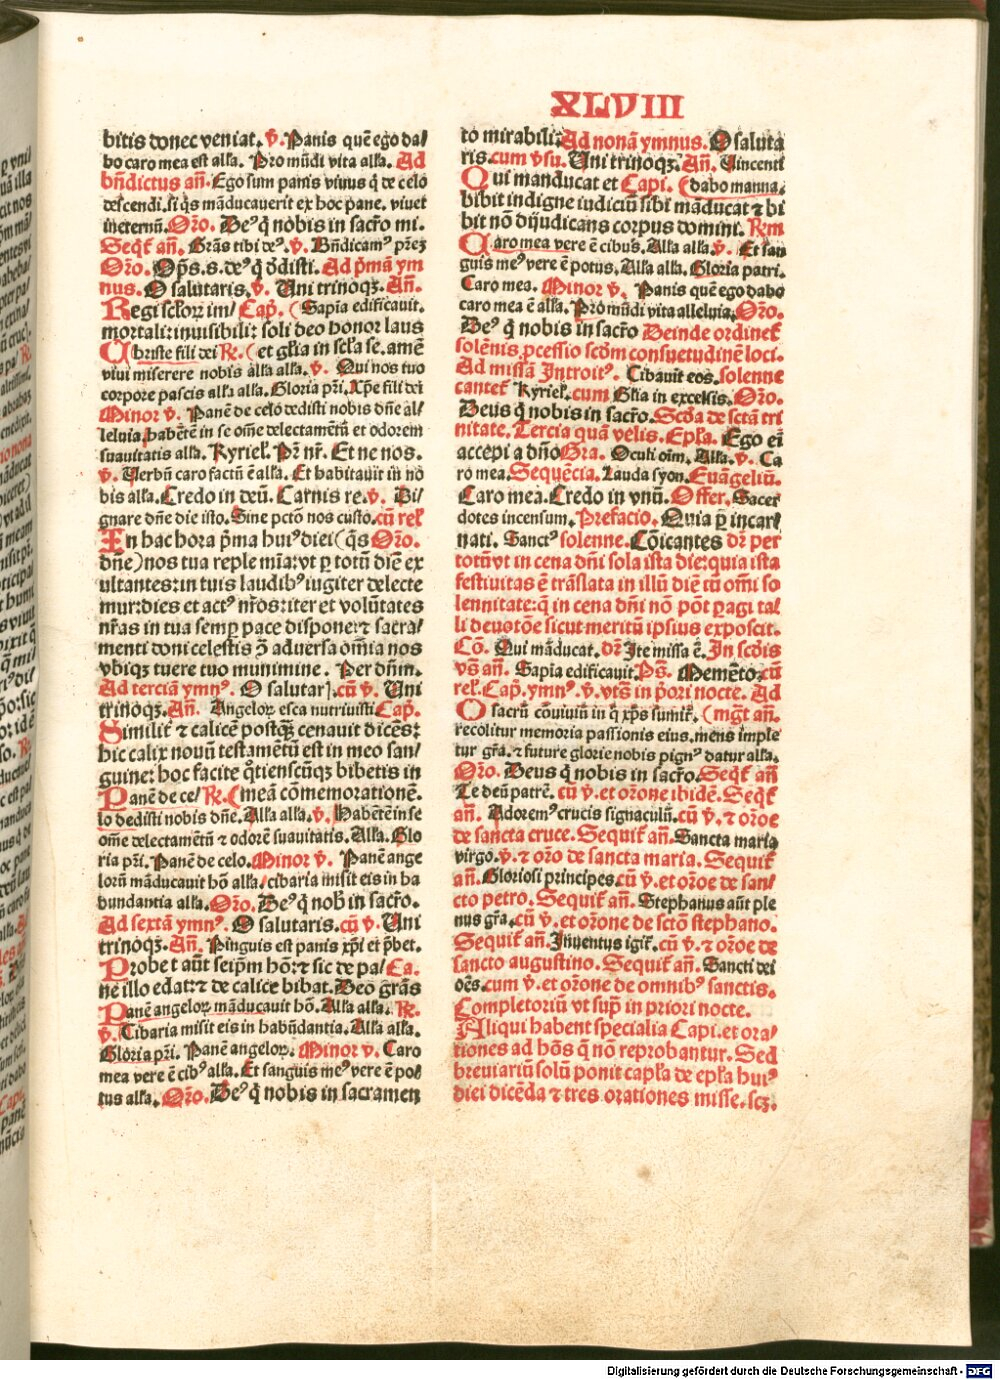 XLVIII
bitis donec veniat. v̄. Panis quē ego da/
bo caro mea est alľa. Pro mūdi vita alľa. Ad
bn̄dictus an̄. Ego sum panis viuus q̄ de celo
descendi. si q̄s māducauerit ex hoc pane. viuet
ineternū. Oro. Deꝰ q̄ nobis in sacr̄o mi.
Seqť an̄. Gr̄as tibi deꝰ. v̄. Bn̄dicamꝰ pr̄eꝫ
Oro. Op̄s. s. deꝰ q̄ ꝺdisti. Ad p̄mā ym
nus. O salutaris. v̄. Uni trinoqꝫ. An̄.
Regi scľoꝝ im/ Cap̄. (Sapīa edificauit.
mortali: inuisibili: soli deo honor laus
Christe fili dei R̄. (et gľia in scľa se. amē
viui miserere nobis alľa alľa. v̄. Qui nos tuo
corpore pascis alľa alľa. Gloria pr̄i. Xp̄e fili dei
Minor v̄. Panē de celo dedisti nobis dn̄e al/
leluia. habētē in se om̄e delectamētū et odorem
suauitatis alľa. Kyrieľ. Pr̄ nr̄. Et ne nos.
v̄. Uerbū caro factū ē alľa. Et habitauit in no
bis alľa. Credo in deū. Carnis re. v̄. Di/
gnare dn̄e die isto. Sine pctō nos custo. cū reľ
In hac hora p̄ma huiꝰ diei (q̄s Oro.
dn̄e) nos tua reple mīa: vt ꝑ totū diē ex
ultantes: in tuis laudibꝰ iugiter delecte
mur: dies et actꝰ nr̄os: iter et volūtates
nr̄as in tua semꝑ pace dispone: ⁊ sacra/
menti doni celestis ꝯ aduersa om̄ia nos
vbiqꝫ tuere tuo munimine. Per dn̄m.
Ad terciā ymnꝰ. O salutar). cū v̄. Uni
trinoqꝫ. An̄. Angeloꝝ esca nutriuisti Cap̄.
Similiť ⁊ calicē postqꝫ cenauit dicēs:
hic calix nouū testamētū est in meo san/
guine: hoc facite q̄tienscūqꝫ bibetis in
Panē de ce/ R̄. (meā cōmemorationē.
lo dedisti nobis dn̄e. Alľa alľa. v̄. Habētē in se
om̄e delectamētū ⁊ odorē suauitatis. Alľa. Glo
ria pr̄i. Panē de celo. Minor v̄. Panē ange
lorū māducauit hō alľa/ cibaria misit eis in ha
bundantia alľa. Oro. Deꝰ q̄ nob̄ in sacr̄o.
Ad sextā ymnꝰ. O salutaris. cū v̄. Uni
trinoqꝫ. An̄. Pinguis est panis xp̄i et p̄bet.
Probet aūt seip̄m hō: ⁊ sic de pa/ Ca.
ne illo edat: ⁊ de calice bibat. Deo gr̄as
Panē angeloꝝ māducauit hō. Alľa alľa. R̄.
v̄. Cibaria misit eis in habūdantia. Alľa alľa.
Gloria pr̄i. Panē angeloꝝ. Minor v̄. Caro
mea vere ē cibꝰ alľa. Et sanguis meꝰ vere ē po/
tus alľa. Oro. Deꝰ q̄ nobis in sacramen
to mirabili: Ad nonā ymnus. O saluta
ris. cum v̄su. Uni trinoqꝫ. An̄. Uincenti
Qui manducat et Capi. (dabo manna.
bibit indigne iudiciū sibi māducat ⁊ bi
bit nō dijudicans corpus domini. R̄m
Caro mea vere ē cibus. Alľa alľa. v̄. Et san
guis meꝰ vere ē potus. Alľa alľa. Gloria patri.
Caro mea. Minor v̄. Panis quē ego dabo
caro mea ē alľa. Pro mūdi vita alleluia. Oro.
Deꝰ q̄ nobis in sacr̄o Deinde ordineť
solēnis ꝓcessio scd̄m consuetudinē loci.
Ad missā Introitꝰ. Cibauit eos. solenne
canteť Kyrieľ. cum Gľia in excelsis. Oro.
Deus q̄ nobis in sacr̄o. Scďa de sctā tri
nitate. Tercia quā velis. Epľa. Ego ei
accepi a dn̄o Gra. Oculi oim̄. Alľa. v̄. Ca
ro mea. Sequēcia. Lauda syon. Euāgeliū.
Caro mea. Credo in vnū. Offer. Sacer
dotes incensum. Prefacio. Quia ꝑ incar
nati. Sanctꝰ solenne. Cōicantes dr̄ per
totū vt in cena dn̄i sola ista die: quia ista
festiuitas ē trāslata in illū diē tū om̄i so
lennitate: q̄ in cena dn̄i nō pōt ꝑagi ta/
li deuotōe sicut meritū ipsius exposcit.
Cō. Qui māducat. dr̄ Ite missa ē. In scd̄is
vs̄ an̄. Sapīa edificauit. Ps̄. Memēto. cū
reľ. Cap̄. ymnꝰ. v̄. vts̄ in p̄ori nocte. Ad
O sacrū cōuiuiū in q̄ xp̄s sumiť. (mgt̄ an̄.
recolitur memoria passionis eius. mens imple
tur gr̄a. ⁊ future glorie nobis pignꝰ datur alľa.
Oro. Deus q̄ nobis in sacr̄o. Seqť an̄
Te deū patrē. cū v̄. et or̄one ibidē. Seqť
an̄. Adoremꝰ crucis signaculū. cū v̄. ⁊ or̄oe
de sancta cruce. Sequiť an̄. Sancta maria
virgo. v̄. ⁊ or̄o de sancta maria. Sequiť
an̄. Gloriosi principes. cū v̄. et or̄oe de san/
cto petro. Sequiť an̄. Stephanus aūt ple
nus gr̄a. cū v̄. et or̄one de sctō stephano.
Sequiť an̄. Inuentus igiť. cū v̄. ⁊ or̄oe de
sancto augustino. Sequiť an̄. Sancti dei
oēs. cum v̄. et or̄one de omnibꝰ sanctis.
Completoriū vt sup̄ in priori nocte.
Aliqui habent specialia Capi. et ora/
tiones ad hōs q̄ nō reprobantur. Sed
breuiariū solū ponit capľa de epľa huiꝰ
diei dicēda ⁊ tres orationes misse. scꝫ.
Digitalisierung gefördert durch die Deutsche Forschungsgemeinschaft - DFG